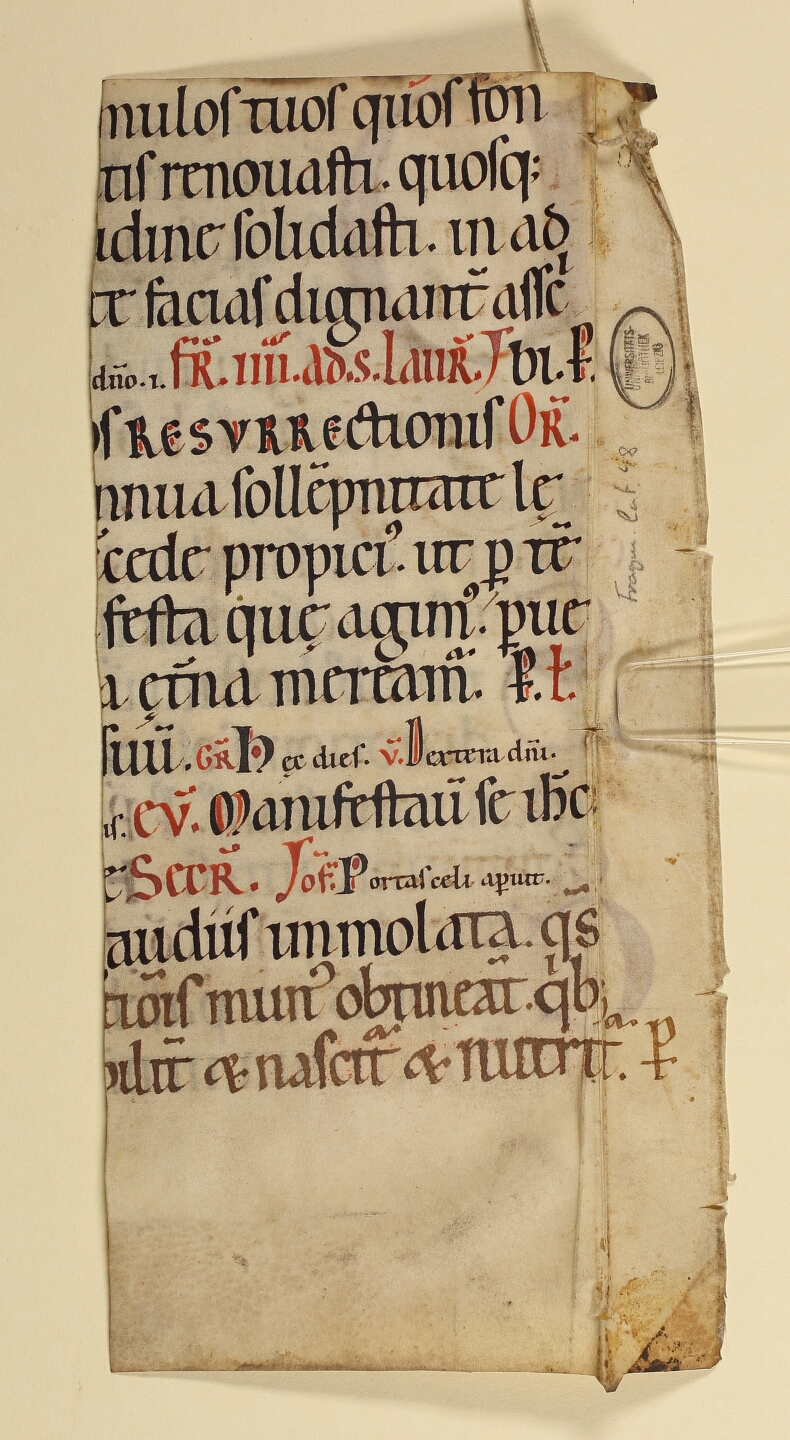 mulos tuos quos fon
tis renouasti. quosq;
idine solidasti. in ad
te facias dignant̄ assc̄
dn̄o. i. FR̄. IIII. Ad. s. laur̄. J bi. P.
os RESURRectionis OR̄.
nnua sollēpnitate lę
cede propici⁹. ut p tē
festa quę agim⁹. pue
a ęt̄na meream̄. P. L.
suū. GR̄ H ec dies. v̄. Dextera dn̄i.
is. ev̄. Manifestau̅ se ih̄c
e Secr̄. Jof̄. Portas celi aperuit.
audiis immolata. qs̄
tiōis mun⁹ obtineat̄. qͥb;
bilit̄ & nascit̄ & nutrit̄. P
UNIVERSITÄTS-
BIBLIOTHEK
LEIPZIG
Fragm. Lat. 48